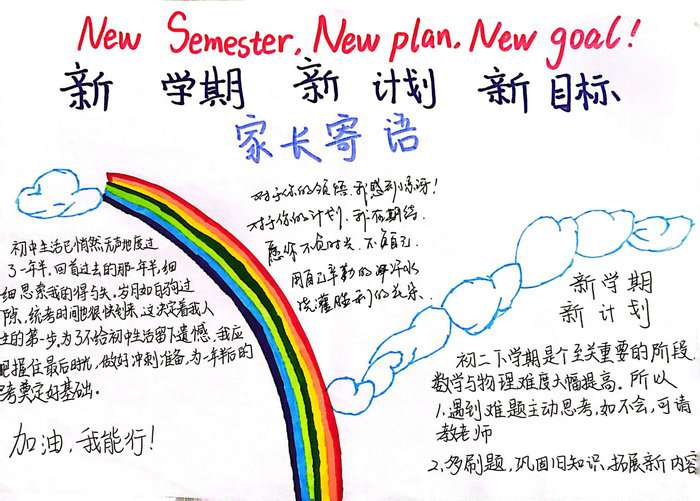 New Semester, New plan. New goal!
新 学期 新 计划 新目标
家长寄语
初中生活已悄然无声地度过
了一年半，回首过去的那一年半，细
细思索我的得与失。岁月如白驹过
隙，统考时间也很快到来，这决定着我人
生的第一步，为了不给初中生活留下遗憾，我应
把握住最后时光，做好冲刺准备，为一年半后的
考奠定好基础。
加油，我能行！
对于你的领悟，我感到惊讶！
对于你的计划，我有期待.
愿你不负时光、不负自己
用自己辛勤的汗水
浇灌胜利的花朵.
新学期
新 计划
初二下学期是个至关重要的阶段
数学与物理难度大幅提高。所以
1.遇到难题主动思考，如不会，可请
教老师
2.多刷题，巩固旧知识，拓展新内容